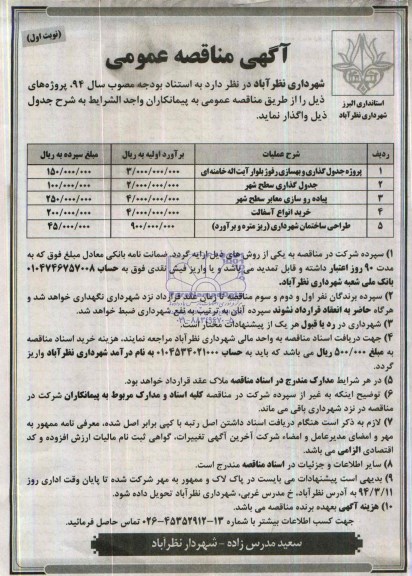 (نوبت اول)
آگهی مناقصه عمومی
استانداری البرز
شهرداری نظرآباد
شهرداری نظرآباد در نظر دارد به استناد بودجه مصوب سال ۹۴، پروژه‌های
ذیل را از طریق مناقصه عمومی به پیمانکاران واجد الشرایط به شرح جدول
ذیل واگذار نماید.
ردیف شرح عملیات برآورد اولیه به ریال مبلغ سپرده به ریال
۱ پروژه جدول گذاری و بهسازی رفوژ بلوار آیت‌اله خامنه‌ای ۳/۰۰۰/۰۰۰/۰۰۰ ۱۵۰/۰۰۰/۰۰۰
۲ جدول گذاری سطح شهر ۲/۰۰۰/۰۰۰/۰۰۰ ۱۰۰/۰۰۰/۰۰۰
۳ پیاده رو سازی معابر سطح شهر ۴/۰۰۰/۰۰۰/۰۰۰ ۲۵۰/۰۰۰/۰۰۰
۴ خرید انواع آسفالت ۴/۰۰۰/۰۰۰/۰۰۰ ۲۰۰/۰۰۰/۰۰۰
۵ طراحی ساختمان شهرداری (ریز متره و برآورد) ۹۰۰/۰۰۰/۰۰۰ ۴۵/۰۰۰/۰۰۰
۱) سپرده شرکت در مناقصه به یکی از روش‌های ذیل ارائه گردد. ضمانت نامه بانکی معادل مبلغ فوق که به
مدت ۹۰ روز اعتبار داشته و قابل تمدید می‌باشد و یا واریز فیش نقدی فوق به حساب ۰۱۰۴۷۴۶۷۵۷۰۰۸
بانک ملی شعبه شهرداری نظرآباد.
۲) سپرده برندگان نفر اول و دوم و سوم مناقصه تا زمان عقد قرارداد نزد شهرداری نگهداری خواهد شد و
هرگاه حاضر به انعقاد قرارداد نشوند سپرده آنان به ترتیب به نفع شهرداری ضبط خواهد شد.
۳) شهرداری در رد یا قبول هر یک از پیشنهادات مختار است.
۴) جهت دریافت اسناد مناقصه به واحد مالی شهرداری نظرآباد مراجعه نمایند، هزینه خرید اسناد مناقصه
به مبلغ ۵۰۰/۰۰۰ ریال می باشد که باید به حساب ۰۱۰۴۵۳۴۰۲۱۰۰۰ به نام درآمد شهرداری نظرآباد واریز
گردد.
۵) در هر شرایط مدارک مندرج در اسناد مناقصه ملاک عقد قرارداد خواهد بود.
۶) توضیح اینکه به غیر از سپرده شرکت در مناقصه کلیه اسناد و مدارک مربوط به پیمانکاران شرکت در
مناقصه در نزد شهرداری باقی می ماند.
۷) لازم به ذکر است هنگام دریافت اسناد داشتن اصل رتبه با کپی برابر اصل شده، معرفی نامه ممهور به
مهر و امضای مدیرعامل و امضاء شرکت آخرین آگهی تغییرات، گواهی ثبت نام مالیات ارزش افزوده و کد
اقتصادی الزامی می باشد.
۸) سایر اطلاعات و جزئیات در اسناد مناقصه مندرج است.
۹) بدیهی است پیشنهادات می بایست در پاک لاک و ممهور به مهر شرکت شده تا پایان وقت اداری روز
۹۴/۳/۱۱ به آدرس نظرآباد، خ مدرس غربی، شهرداری نظرآباد تحویل داده شود.
۱۰) هزینه آگهی بعهده برنده مناقصه می باشد.
جهت کسب اطلاعات بیشتر با شماره ۱۳-۴۵۳۵۲۹۱۲-۰۲۶ تماس حاصل فرمائید.
سعید مدرس زاده - شهردار نظرآباد